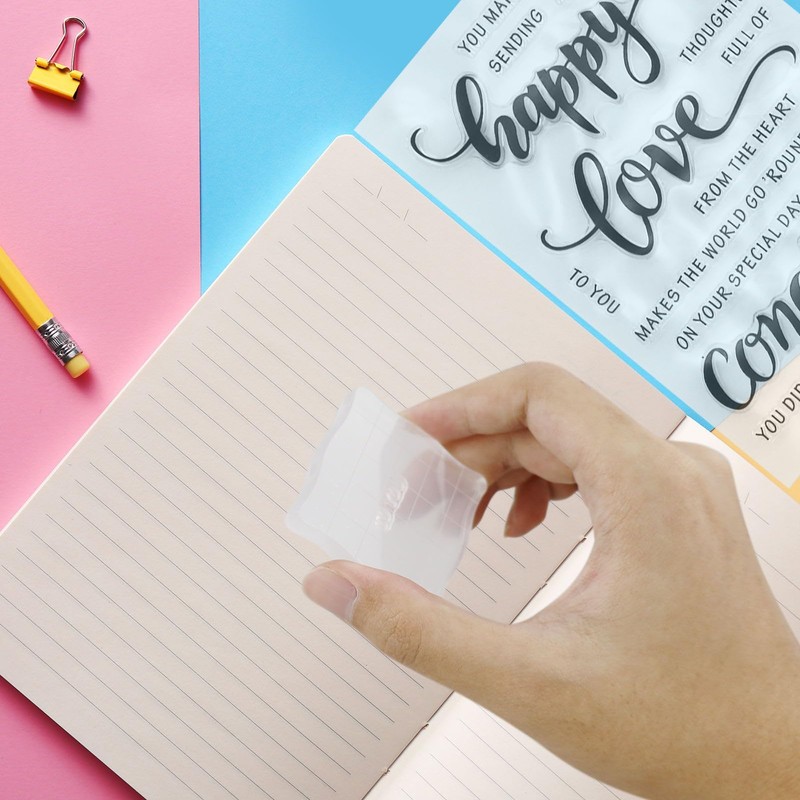 YOU MA
SENDING
happy
THOUGHT
FULL OF
love
FROM THE HEART
TO YOU
MAKES THE WORLD GO 'ROUN
ON YOUR SPECIAL DAY
con
YOU DID